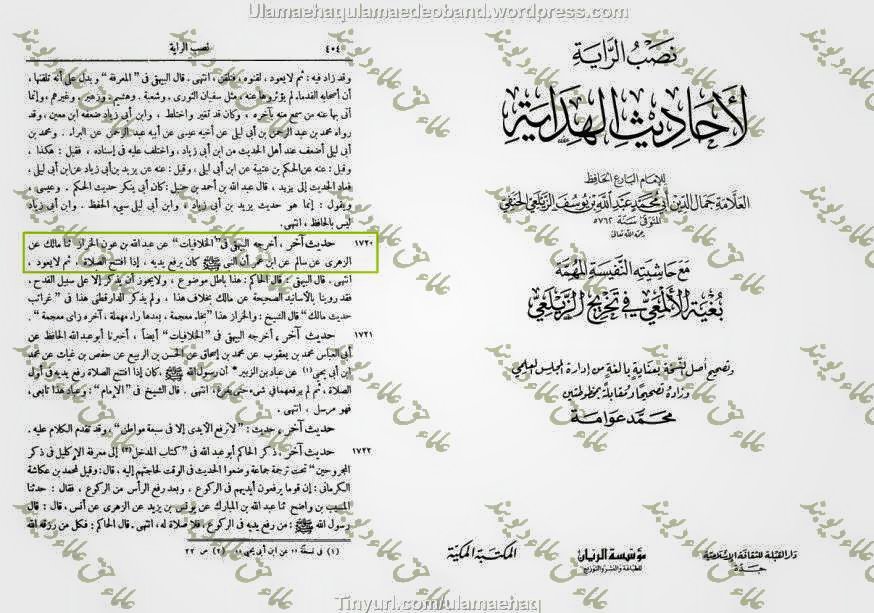 Ulamaehaqulamaedeoband.wordpress.com
٤٠٤ نصب الراية
وقد زاد فيه : ثم لا يعود ، لقنوه ، فتلقن ، انتهى . قال البيهقي في " المعرفة " ويدل على أنه تلقنها ،
أن أصحابه القدماء لم يؤثروها عنه ، مثل سفيان الثورى ، وشعبة . وهشيم . وزهير . وغيرهم ، وإنما
أتى بها عنه من سمع منه بآخره ، وكان قد تغير واختلط ، وابن أبى زياد ضعفه ابن معين ، وقد
رواه محمد بن عبد الرحمن بن أبى ليلى عن أخيه عيسى عن أبيه عبد الرحمن عن البراء . ومحمد بن
أبى ليلى أضعف عند أهل الحديث من ابن أبى زياد ، واختلف عليه فى إسناده ، فقيل : هكذا ،
وقيل : عنه عن الحكم بن عتيبة عن ابن أبى ليلى ، وقيل : عنه عن يزيد بن أبى زياد عن ابن أبى ليلى ،
فعاد الحديث إلى يزيد ، قال عبد الله بن أحمد بن حنبل : كان أبى ينكر حديث الحكم . وعيسى ،
ويقول : إنما هو حديث يزيد بن أبى زياد ، وابن أبى ليلى سيىء الحفظ . وابن أبى زياد
ليس بالحافظ ، انتهى .
١٧٢٠ حديث آخر ، أخرجه البيهقى فى " الخلافيات " عن عبد الله بن عون الخراز ثنا مالك عن
الزهرى عن سالم عن ابن عمر أن النبى ﷺ كان يرفع يديه ، إذا افتتح الصلاة ، ثم لا يعود ،
انتهى . قال البيهقى : قال الحاكم : هذا باطل موضوع ، ولا يجوز أن يذكر إلا على سبيل القدح ،
فقد روينا بالأسانيد الصحيحة عن مالك بخلاف هذا ، ولم يذكر الدارقطنى هذا فى " غرائب
حديث مالك " قال الشيخ : والخراز هذا " بخاء معجمة ، بعدها راء مهملة ، آخره زاى معجمة " .
١٧٢١ حديث آخر ، أخرجه البيهقى فى " الخلافيات " أيضاً ، أخبرنا أبو عبد الله الحافظ عن
أبى العباس محمد بن يعقوب عن محمد بن إسحاق عن الحسن بن الربيع عن حفص بن غياث عن محمد
ابن أبى يحيى (١) عن عباد بن الزبير * أن رسول الله ﷺ ، كان إذا افتتح الصلاة رفع يديه فى أول
الصلاة ، ثم لم يرفعهما فى شىء حتى يفرغ ، انتهى . قال الشيخ فى " الإمام " : وعباد هذا تابعى ،
فهو مرسل ، انتهى .
حديث آخر ، حديث : " لا ترفع الأيدى إلا فى سبعة مواطن " ، وقد تقدم الكلام عليه .
١٧٢٢ حديث آخر ، ذكر الحاكم أبو عبد الله فى " كتاب المدخل (٢) إلى معرفة الإكليل فى ذكر
المجروحين " تحت ترجمة جماعة وضعوا الحديث فى الوقت لحاجتهم إليه ، قال : وقيل لمحمد بن عكاشة
الكرمانى : إن قوما يرفعون أيديهم فى الركوع ، وبعد رفع الرأس من الركوع ، فقال : حدثنا
المسيب بن واضح ثنا عبد الله بن المبارك عن يونس بن يزيد عن الزهرى عن أنس ، قال : قال
رسول الله ﷺ : من رفع يديه فى الركوع ، فلا صلاة له ، انتهى . قال الحاكم : فكل من رزقه الله
(١) فى نسخة " عن ابن أبى يحيى " (٢) ص ٢٢
نصب الراية
لأحاديث الهداية
للإمام البارع الحافظ
العلامة جمال الدين أبي محمد عبد الله بن يوسف الزيلعي الحنفي
المتوفى سنة ٧٦٢ هـ
رحمه الله تعالى
مع حاشيته النفيسة المهمة
بغية الألمعي في تخريج الزيلعي
وتصحيح أصل النسخة بعناية بالغة من إدارة المجلس العلمي
وزاده تصحيحا ومقابلة بمخطوطتين
محمد عوامة
دار القبلة للثقافة الإسلامية
جدة
مؤسسة الريان
للطباعة والنشر والتوزيع
المكتبة المكية
علماء حق علماء ديوبند
Tinyurl.com/ulamaehaq